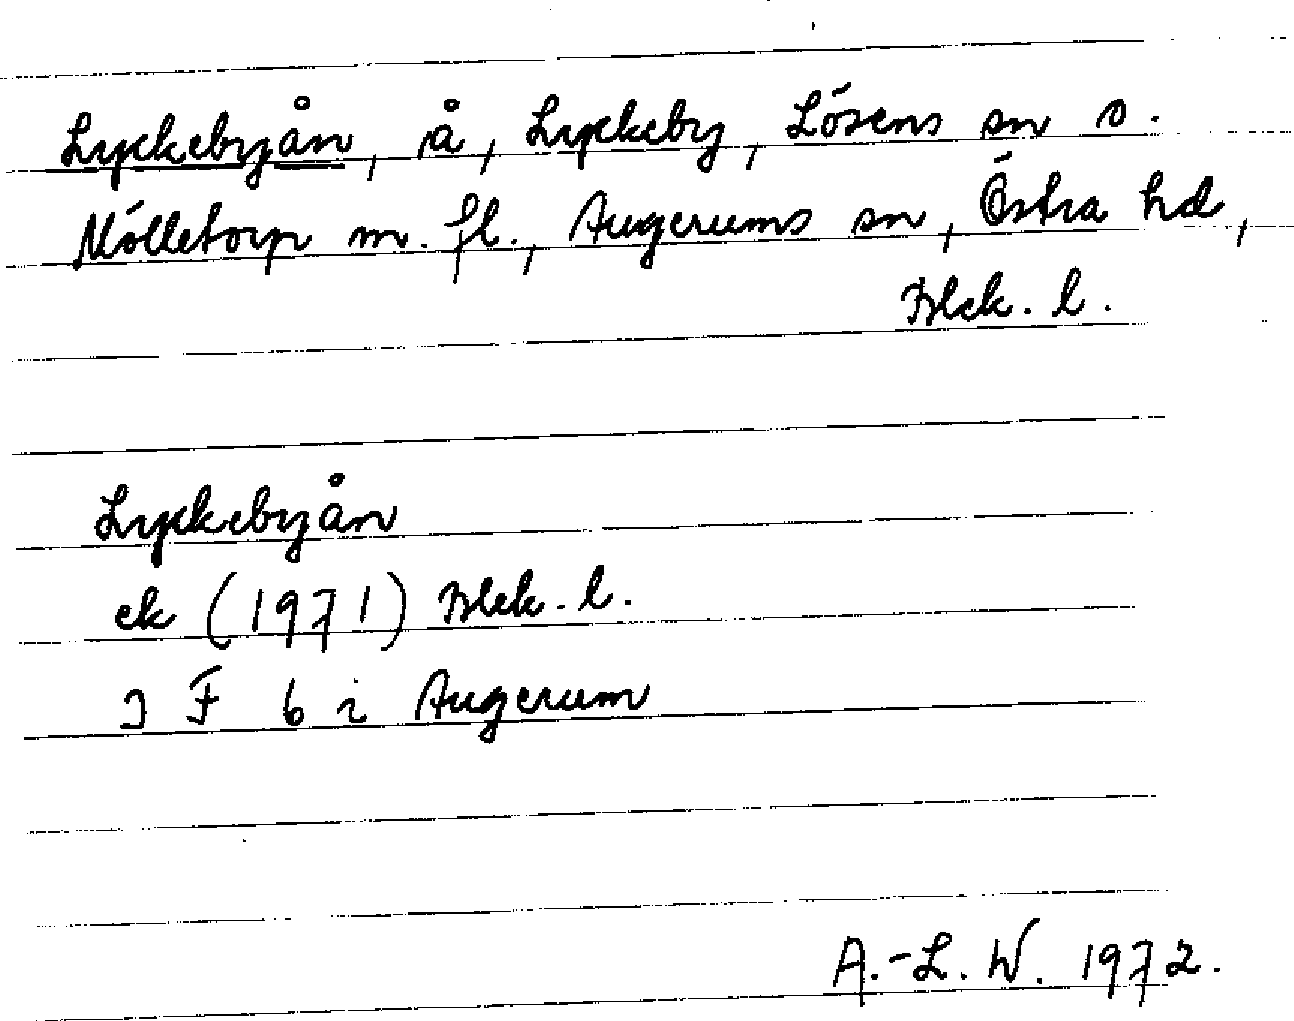 Lyckebyån, å, Lyckeby, Lösens sn o.
Mölletorp m. fl., Augerums sn, Östra hd,
Blek. l.
Lyckebyån
ek (1971) Blek. l.
3 F 6 i Augerum
A.-L. W. 1972.